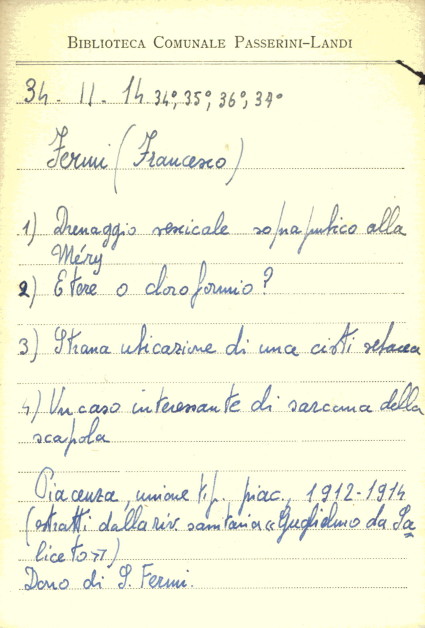 BIBLIOTECA COMUNALE PASSERINI-LANDI
34. II. 14. 34°, 35°, 36°, 37°
Fermi (Francesco)
1) Drenaggio vescicale soprapubico alla
Méry
2) Etere o cloroformio?
3) Strana ubicazione di una cisti sebacea
4) Un caso interessante di sarcoma della
scapola
Piacenza, unione tip. piac., 1912-1914
(estratti dalla riv. sanitaria «Guglielmo da Sa
liceto»)
Dono di S. Fermi.